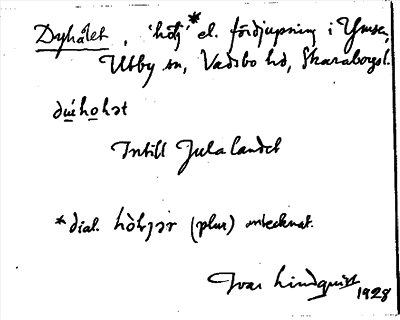 Dyhålet, 'hölj'* el. fördjupning i Ymsen,
Utby sn, Vadsbo hd, Skaraborgsl.
Intill Julalandet
*dial. (plur) antecknat.
Ivar Lindquist
1928